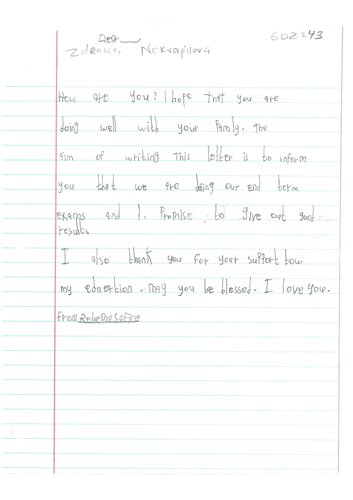 Dear
602243
Zdenka Nekvapilova
How are you? I hope that you are
doing well with your Family. The
aim of writing this letter is to inform
you that we are doing our end term
exams and I. Promise to give out good
results
I also thank you for your support tow
my eduertion. may you be blessed. I love you.
from